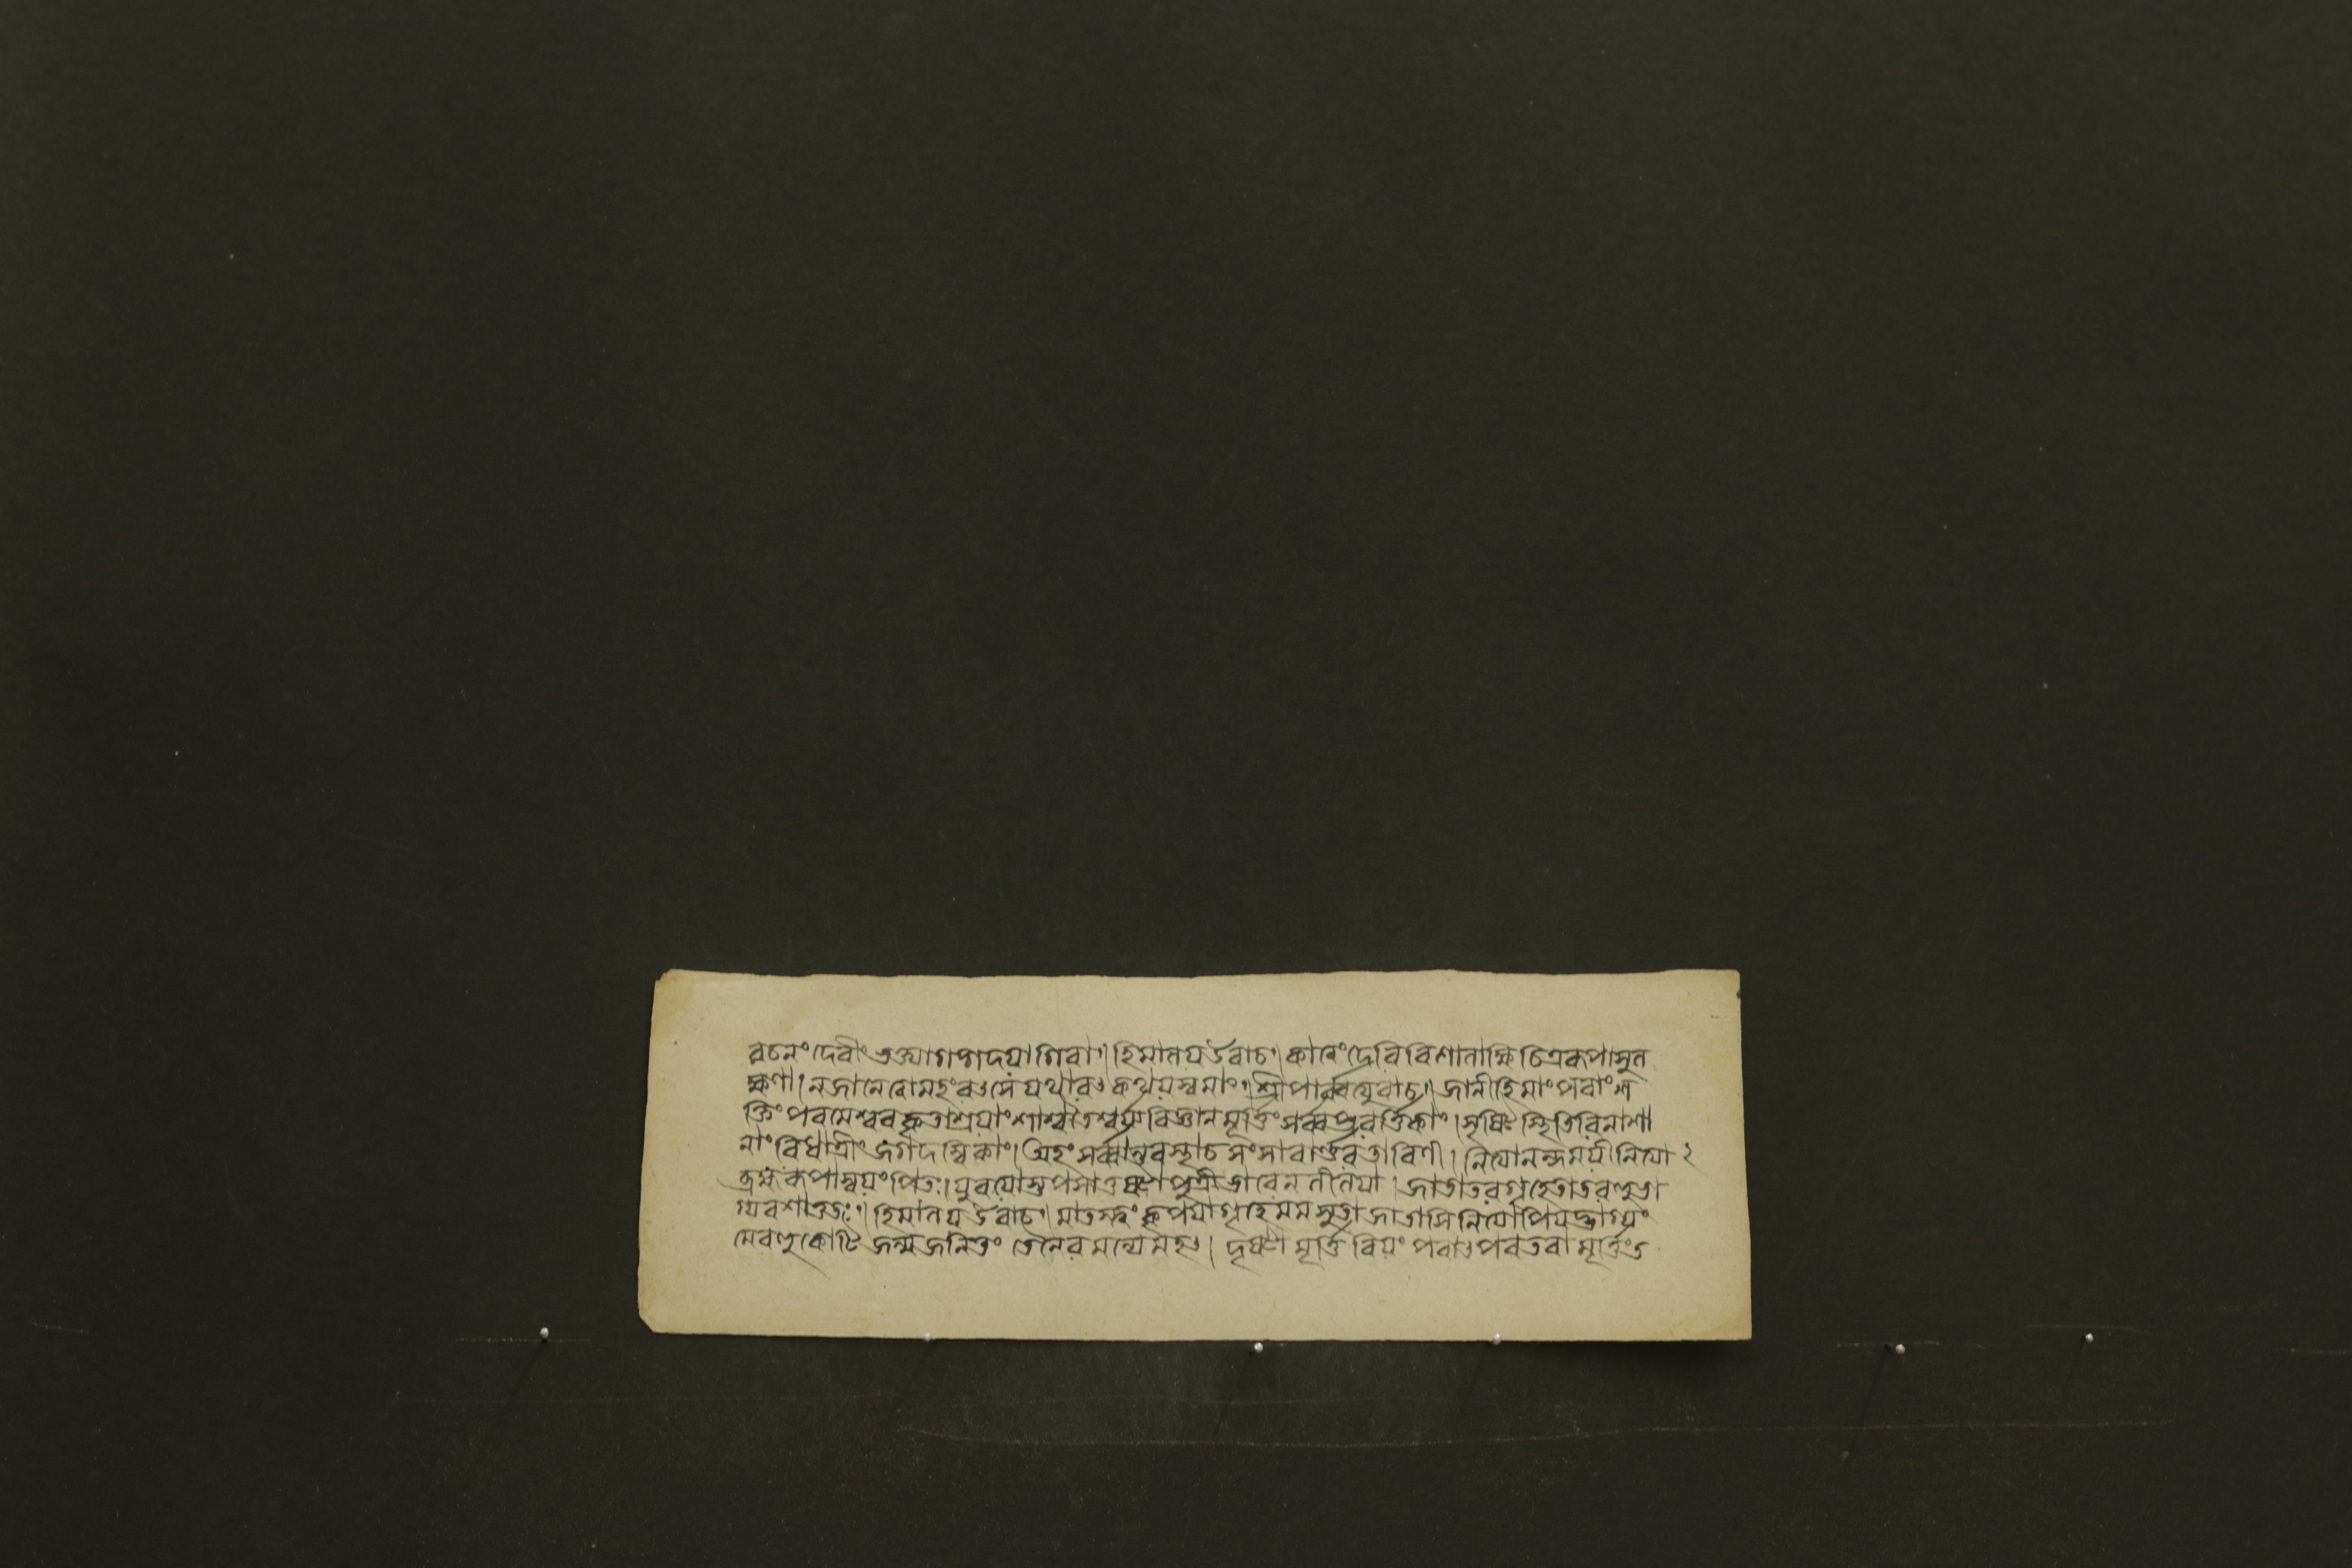 বচনং দেবীং ভক্ত্যাগদ্গদয়াগিরা। হিমালয়উবাচ। কাত্বংদেবিবিশালাক্ষিচিত্ররূপাসুল
ক্ষণা। নজানেত্বামহংবৎসেযথাবৎকথয়স্বমাং। শ্রীপার্ব্বত্যুবাচ। জানীহিমাংপরাংশ
ক্তিং পরমেশ্বরকৃতাশ্রয়াং শাশ্বতৈশ্বর্য্যবিজ্ঞানমূর্ত্তিং সর্ব্বপ্রবর্ত্তিকাং। সৃষ্টিস্থিতিবিনাশা
নাং বিধাত্রীং জগদম্বিকাং। অহং সর্ব্বান্তরস্থাচসংসারার্ণবতারিণী। নিত্যানন্দময়ীনিত্যা ২
ব্রহ্মরূপাস্বয়ংপিতঃ। যুবয়োস্তপসাতুষ্টাপুত্রীভাবেনলীলয়া। জাতাতবগৃহেতাতবহুভা
গ্যবশাত্ততঃ। হিমালয়উবাচ। মাতস্ত্বং কৃপয়াগৃহেমমসুতাজাতাসিনিত্যাপিযদ্ভাগ্যং
মেবহুকোটিজন্মজনিতং তেনৈবমন্যেমহৎ। দৃষ্টা মূর্ত্তিরিয়ং পরাৎপরতরামূর্ত্তিংত